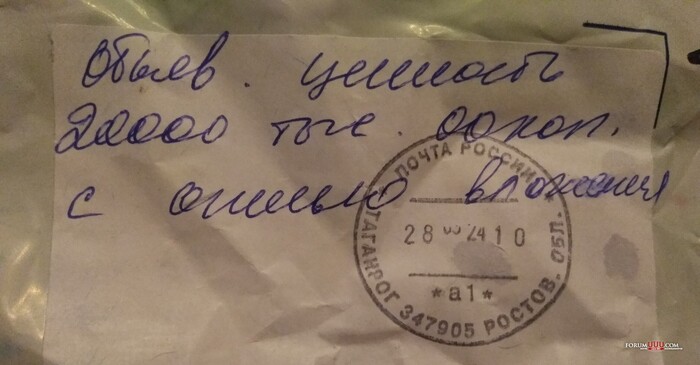 Объяв. ценность
20000 тыс. 00коп.
с описью вложения
ПОЧТА РОССИИ
28 24 10
*а1*
ТАГАНРОГ 347905 РОСТОВ. ОБЛ.
FORUM.COM